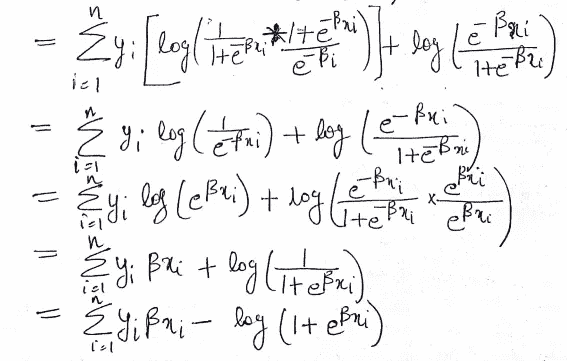 = \sum_{i=1}^{n} y_i [ log( \frac{1}{1+e^{-βx_i}} * \frac{1+e^{-βx_i}}{e^{-β_i}} ) ] + log ( \frac{e^{-βx_i}}{1+e^{-βx_i}} )
= \sum_{i=1}^{n} y_i log( \frac{1}{e^{-βx_i}} ) + log ( \frac{e^{-βx_i}}{1+e^{-βx_i}} )
= \sum_{i=1}^{n} y_i log (e^{βx_i}) + log ( \frac{e^{-βx_i}}{1+e^{-βx_i}} × \frac{e^{βx_i}}{e^{βx_i}} )
= \sum_{i=1}^{n} y_i βx_i + log ( \frac{1}{1+e^{βx_i}} )
= \sum_{i=1}^{n} y_i βx_i - log (1+ e^{βx_i})